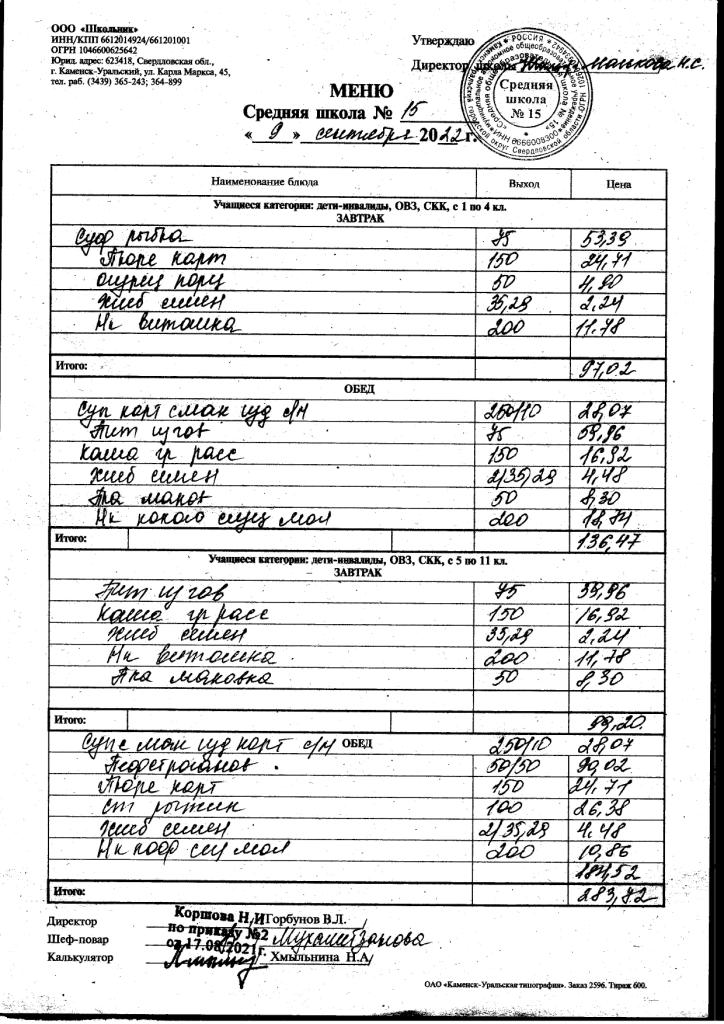 ООО «Школьник»
ИНН/КПП 6612014924/661201001
ОГРН 1046600625642
Юрид. адрес: 623418, Свердловская обл.,
г. Каменск-Уральский, ул. Карла Маркса, 45,
тел. раб. (3439) 365-243; 364-899
Утверждаю
Директор школы
РОССИЯ
Средняя
школа
№ 15
МЕНЮ
Средняя школа № 15
« 9 » сентября 2022 г.
Наименование блюда Выход Цена
Учащиеся категории: дети-инвалиды, ОВЗ, СКК, с 1 по 4 кл.
ЗАВТРАК
Суф рыбка 75 53,39
Пюре карт 150 24,71
огурец порц 50 4,90
хлеб семен 35,29 2.24
Нк виташка 200 11.78
Итого: 97,02
ОБЕД
Суп карт с мак изд с/м 250/10 28,07
75 59,96
каша гр расс 150 16,92
хлеб семен 2/35,29 4,48
50 8,30
Нк какао сгущ мол 200 18,74
Итого: 136,47
Учащиеся категории: дети-инвалиды, ОВЗ, СКК, с 5 по 11 кл.
ЗАВТРАК
75 59,96
каша гр расс 150 16,92
хлеб семен 35,29 2.24
Нк виташка 200 11,78
маковка 50 8,30
Итого: 99,20
Суп с мак изд карт с/м ОБЕД 250/10 28,07
Бефстроганов 50/50 90,02
Пюре карт 150 24,71
100 26,38
хлеб семен 2/35,29 4.48
Нк коф сгу мол 200 10,86
184,52
Итого: 283,72
Директор Коршова Н.И Горбунов В.Л.
Шеф-повар по приказу №2
Калькулятор от 17.08.2021г. Хмыльнина Н.А
ОАО «Каменск-Уральская типография». Заказ 2596. Тираж 600.